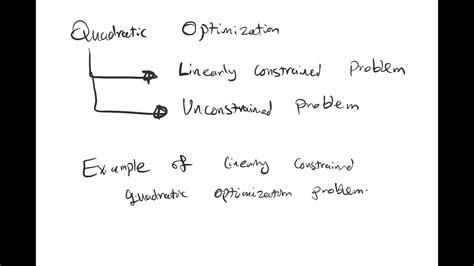 Quadratic Optimization
Linearly constrained problem
Unconstrained problem
Example of linearly constrained
quadratic optimization problem.